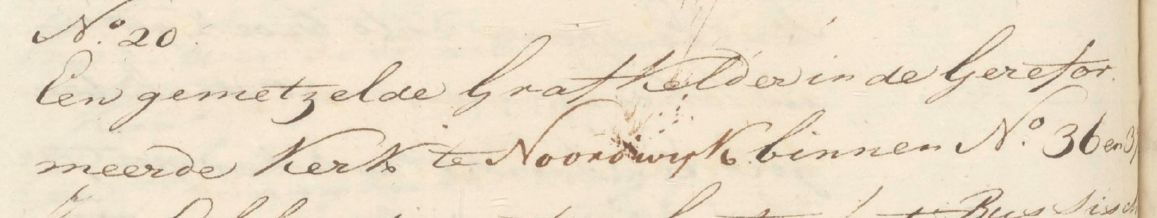 No. 20
Een gemetzelde Grafkelder in de Gerefor
meerde Kerk te Noordwijk binnen No. 36 en 3